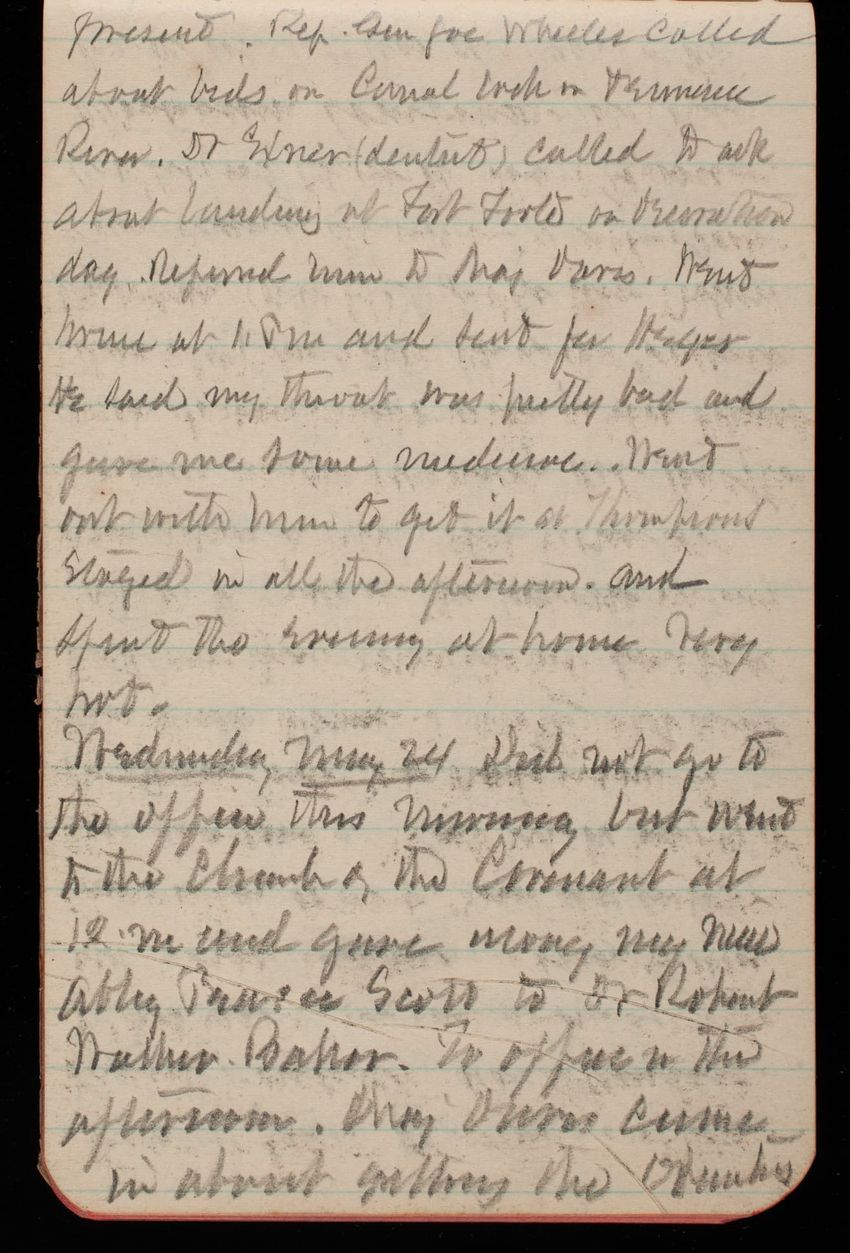 present. Rep. Gen Joe Wheeler called
about bids on Canal lock on Tennessee
River. Dr Exner (dentist) called to ask
about landing at Fort Foote on Decoration
day. Referred him to Maj Davis. Went
home at 1.P m and sent for Heger
He said my throat was pretty bad and
gave me some medicine.. Went
out with him to get it at Thompsons
Stayed in all the afternoon. and
spent the evening at home Very
hot.
Wednesday, May 24 Did not go to
the office this morning but went
to the Church of the Covenant at
12 m and gave away my niece
Abby Pearce Scott to Dr Robert
Walker Baker. To office in the
afternoon. Maj Davis came
in about getting the